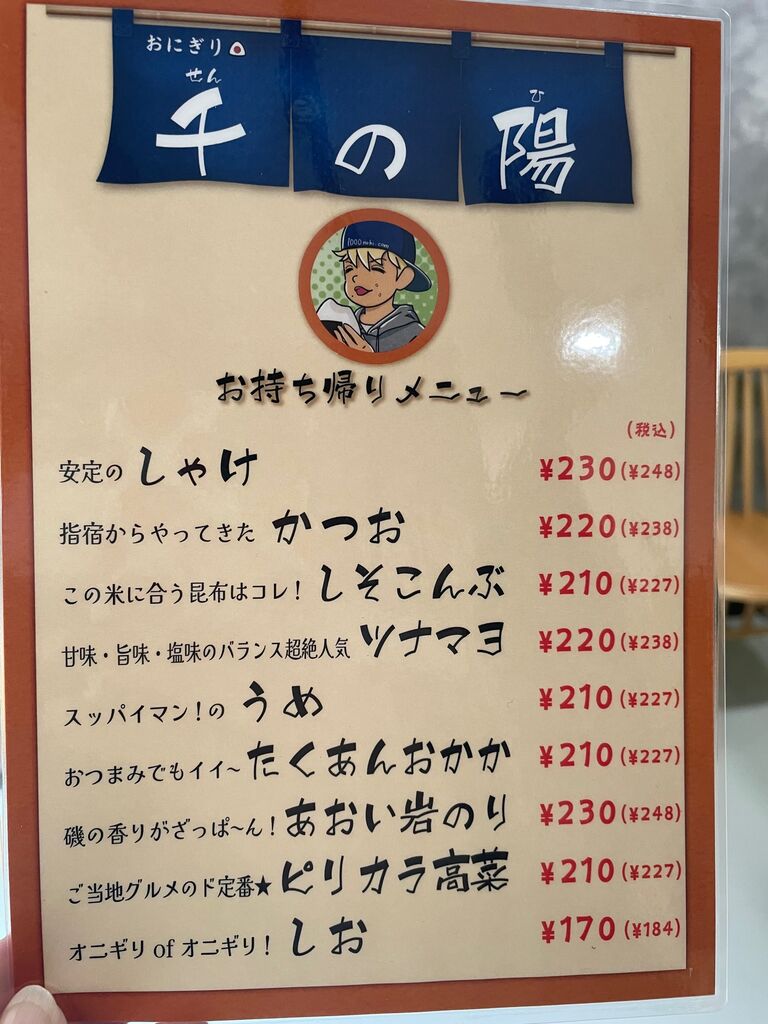 おにぎり
せん ひ
千の陽
1000nohi.com
お持ち帰りメニュー
(税込)
安定の しゃけ ¥230(¥248)
指宿からやってきた かつお ¥220(¥238)
この米に合う昆布はコレ! しそこんぶ ¥210(¥227)
甘味・旨味・塩味のバランス超絶人気 ツナマヨ ¥220(¥238)
スッパイマン!の うめ ¥210(¥227)
おつまみでもイイ~ たくあんおかか ¥210(¥227)
磯の香りがざっぱ~ん! あおい岩のり ¥230(¥248)
ご当地グルメのド定番★ ピリカラ高菜 ¥210(¥227)
オニギリ of オニギリ! しお ¥170(¥184)